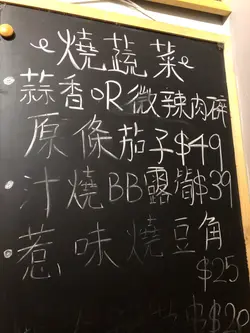 燒蔬菜
蒜香OR微辣肉碎
原條茄子$49
汁燒BB露筍$39
惹味燒豆角
$25
$20